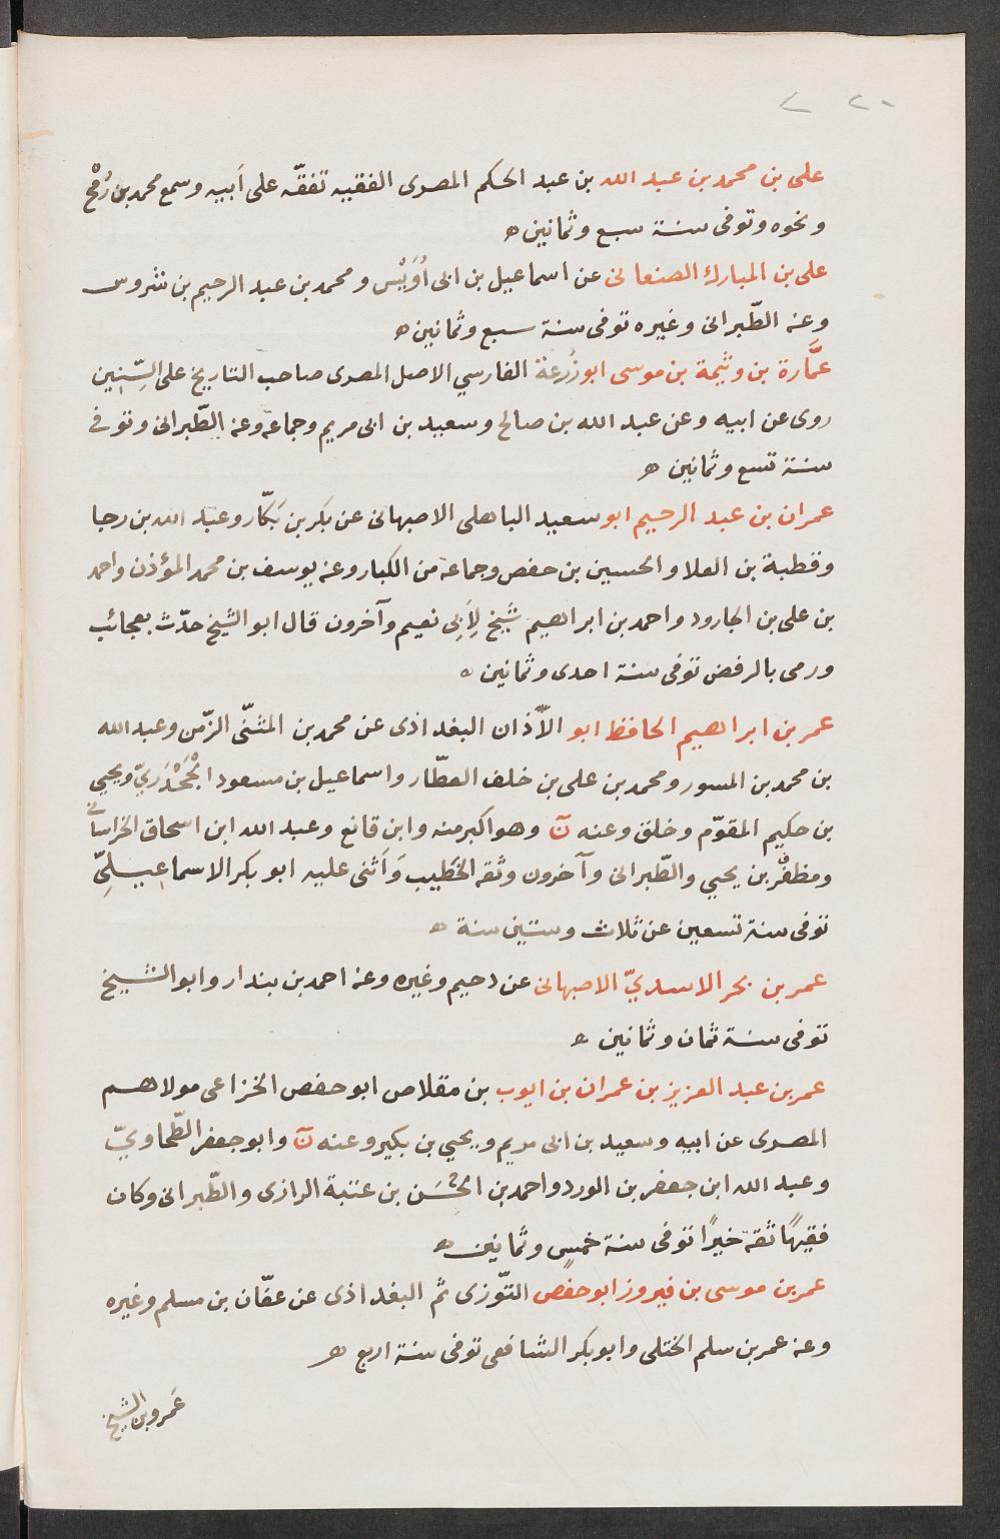 علی بن محمد بن عبد الله بن عبد الحکم المصری الفقیه تفقّه علی اَبیه وسمع محمد بن رُمْح
ونحوه وتوفی سنة سبع وثمانین ه
علی بن المبارك الصنعانی عن اسماعیل بن ابی اُوَیْس ومحمد بن عبد الرحیم بن شروس
وعنه الطّبرانی وغیره توفی سنة سبع وثمانین ه
عمَّارة بن وثیمة بن موسی ابو زُرعة الفارسي الاصل المصری صاحب التاریخ علی السِّنِین
روی عن ابیه وعن عبد الله بن صالح وسعید بن ابی مریم وجماعة وعنه الطّبرانی وتوفے
سنة تسع وثمانین ه
عمران بن عبد الرحیم ابو سعید الباهلی الاصبهانی عن بکر بن بَکّار وعبد الله بن رجا
وقطبة بن العلا والحسین بن حفص وجماعة من الکبار وعنه یوسف بن محمد المؤذن واحمد
بن علی بن الجارود واحمد بن ابراهیم شیخ لِأَبِی نعیم وآخرون قال ابو الشیخ حدّث بعجائب
ورمی بالرفض توفی سنة احدی وثمانین ه
عمر بن ابراهیم الحافظ ابو الأٓذان البغداذی عن محمد بن المثنّی الزّمن وعبد الله
بن محمد بن المسور ومحمد بن علی بن خلف العطّار واسماعیل بن مسعود الجَحْدَريّ ویحیي
بن حکیم المقوّم وخلق وعنه نٓ وهو اکبر منه وابن قانع وعبد الله ابن اسحاق الخراسانے
ومظفّر بن یحیي والطّبرانی وآخرون وثقه الخَطیب وَاَثنی علیه ابو بکر الاسماعیلِيّ
توفی سنة تسعین عن ثلاث وستین سنة ه
عمر بن بحر الاسديّ الاصبهانی عن دحیم وغیره وعنه احمد بن بندار وابو الشیخ
توفی سنة ثمان وثمانین ه
عمر بن عبد العزیز بن عمران بن ایوب بن مقلاص ابو حفص الخزاعی مولاهم
المصری عن ابیه وسعید بن ابی مریم ویحیي بن بکیر وعنه نٓ وابو جعفر الطّحاويّ
وعبد الله ابن جعفر بن الورد واحمد بن الحَسَن بن عتبة الرازی والطّبرانی وکان
فقیهًا ثقة خیرًا توفی سنة خمسٍ وثمانین ه
عمر بن موسی بن فیروز ابو حفص التّوزی ثم البغداذی عن عفّان بن مسلم وغیره
وعنه عمر بن سلم الختلی وابو بکر الشافعی توفی سنة اربع ه
عَمرو بن الشیخ